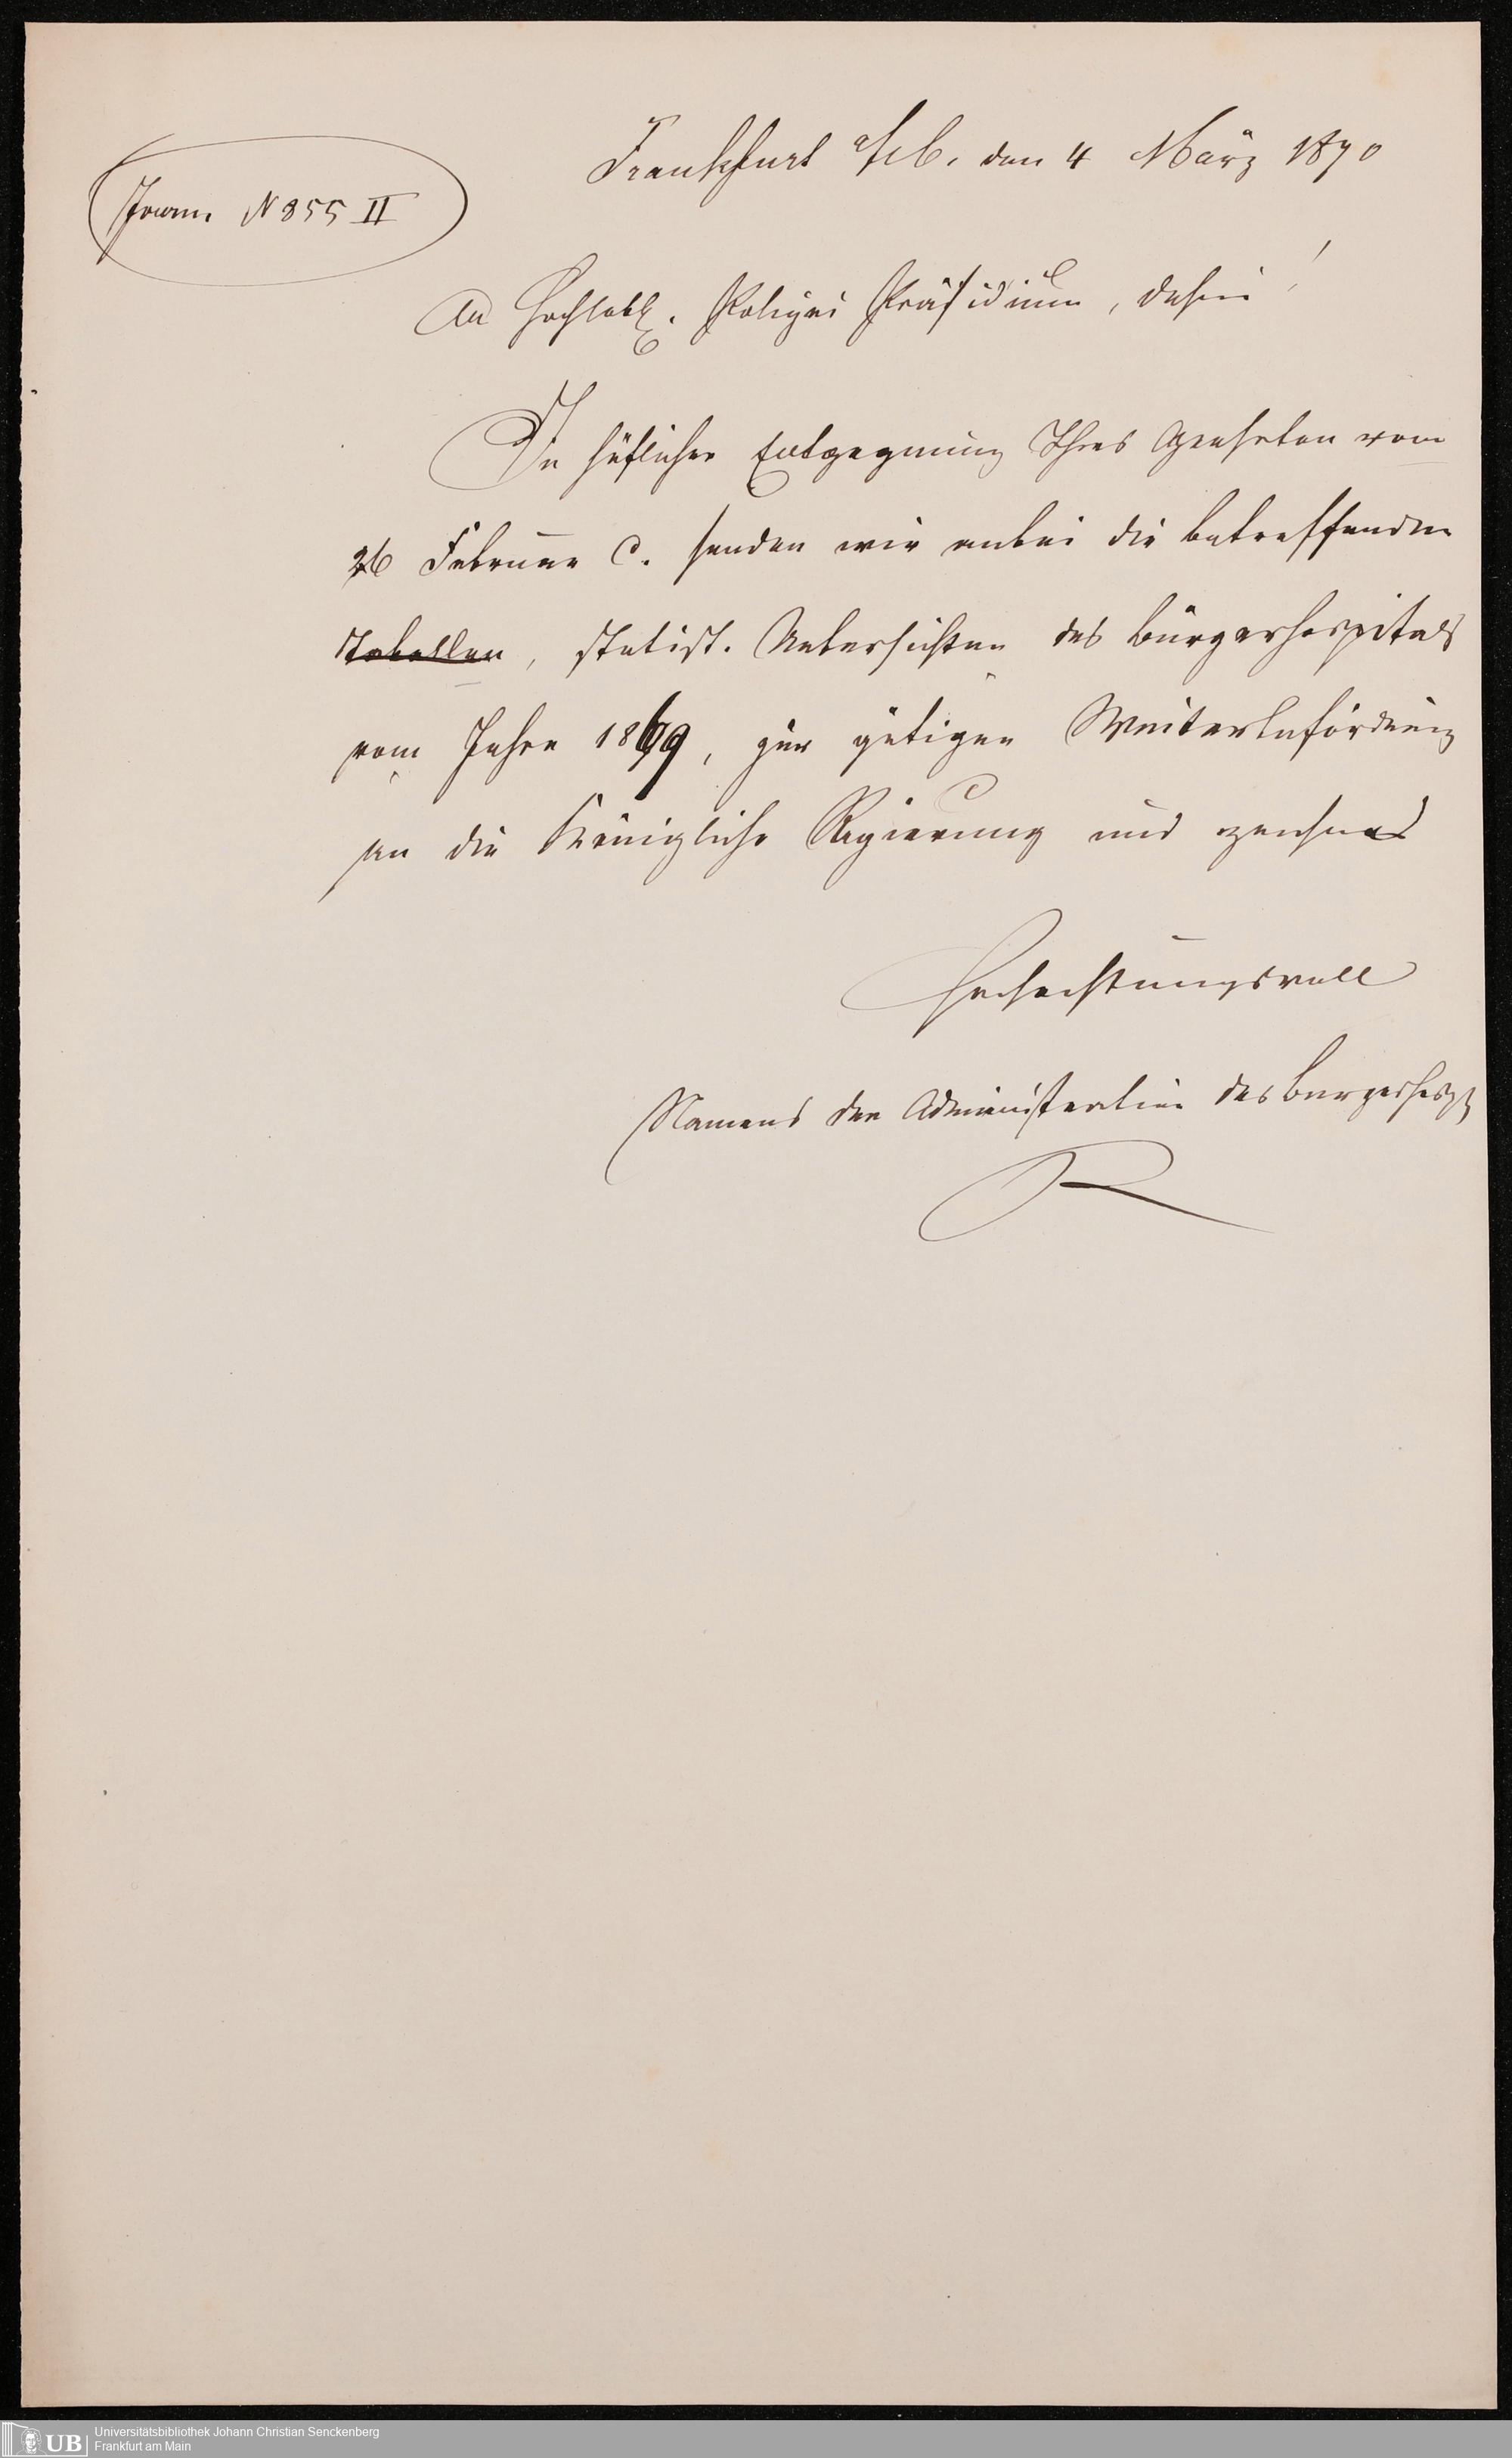 Journ. N 855 II
Frankfurt a/M. den 4 März 1870
An Hochlöbl. Polizei Präsidium, dahier!
In höflicher Entgegnung Ihres Geehrten vom
26 Februar c. senden wir anbei die betreffenden
Tabellen, statist. Uebersichten des Bürgerhospitals
vom Jahre 1869, zur gütigen Weiterbeförderung
an die Königliche Regierung und zeichnen
Hochachtungsvoll
Namens der Administration des Bürgerhospt
R
UB Universitätsbibliothek Johann Christian Senckenberg
Frankfurt am Main